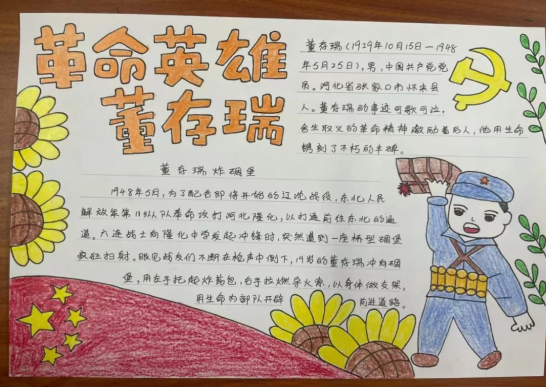 革命英雄
董存瑞
董存瑞(1929年10月15日—1948
年5月25日),男,中国共产党党
员。河北省张家口市怀来县
人。董存瑞的事迹可歌可泣,
舍生取义的革命精神激励着后人,他用生命
镌刻了不朽的丰碑。
董存瑞炸碉堡
1948年5月,为了配合即将开始的辽沈战役,东北人民
解放军第11纵队奉命攻打河北隆化,以打通前往东北的通
道。六连战士向隆化中学发起冲锋时,突然遭到一座桥型碉堡
疯狂扫射。眼见战友们不断在枪声中倒下,19岁的董存瑞冲向碉
堡,用左手托起炸药包,右手拉燃导火索,以身体做支架,
用生命为部队开辟 前进道路。